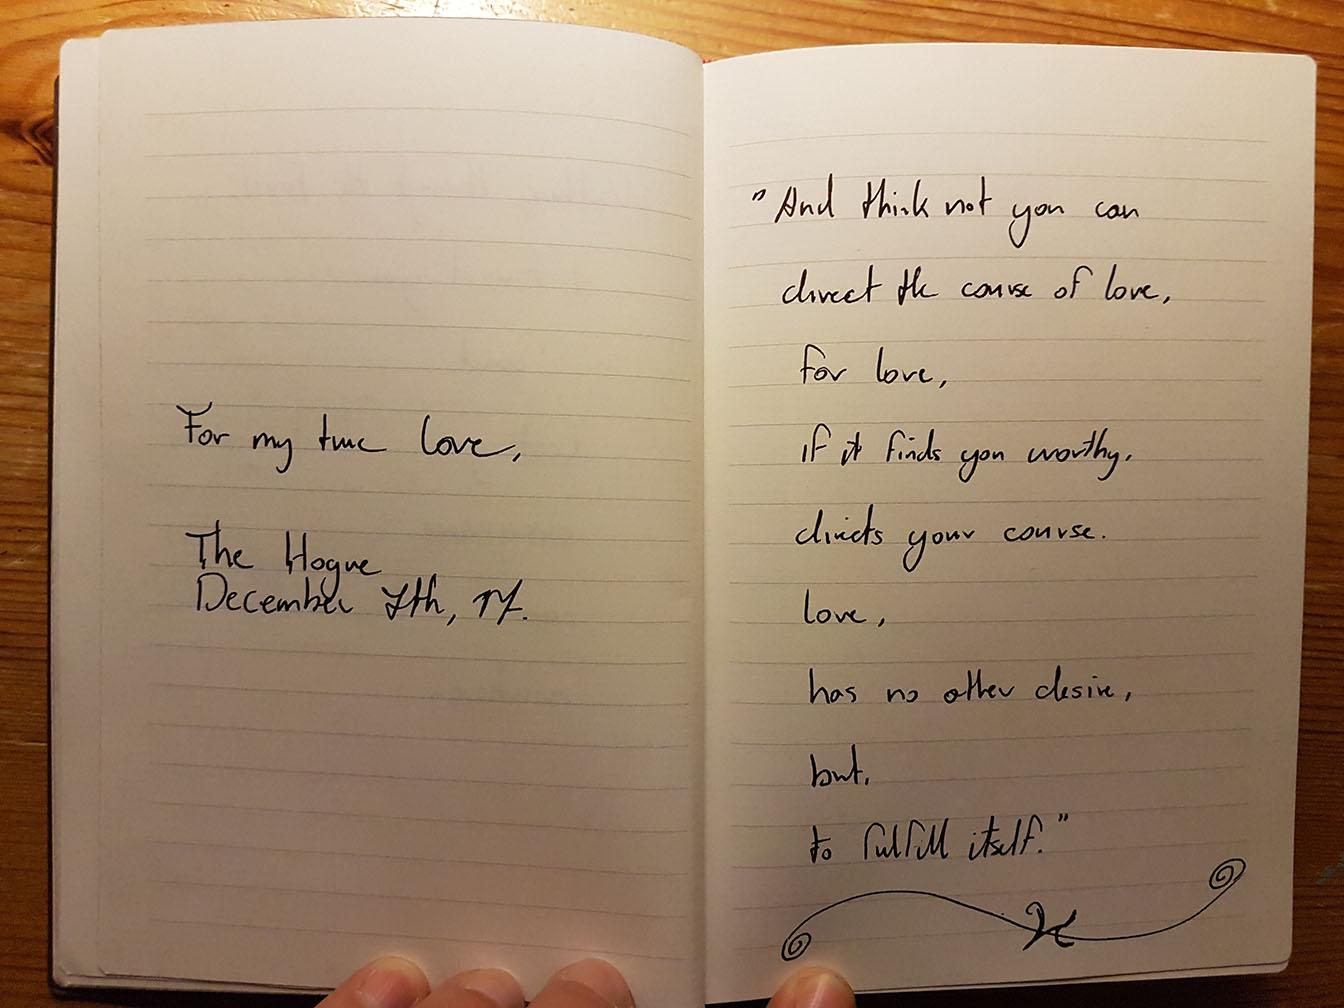 For my true love,
The Hague
December 7th, 17.
"And think not you can
direct the course of love,
for love,
if it finds you worthy,
directs your course.
love,
has no other desire,
but,
to fulfill itself."